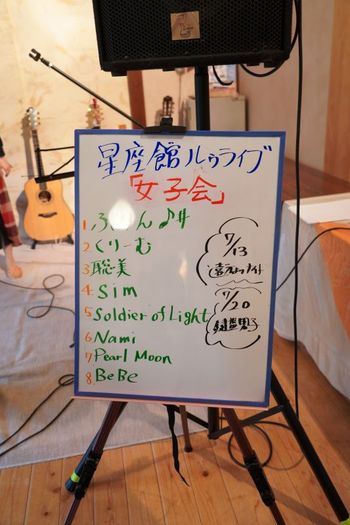 星座館ルゥライブ
「女子会」
1 ふーみん♪♯
2 くりーむ
3 聡美
4 Sim
5 Soldier of Light
6 Nami
7 Pearl Moon
8 BeBe
7/13
7/20
鍵盤男子